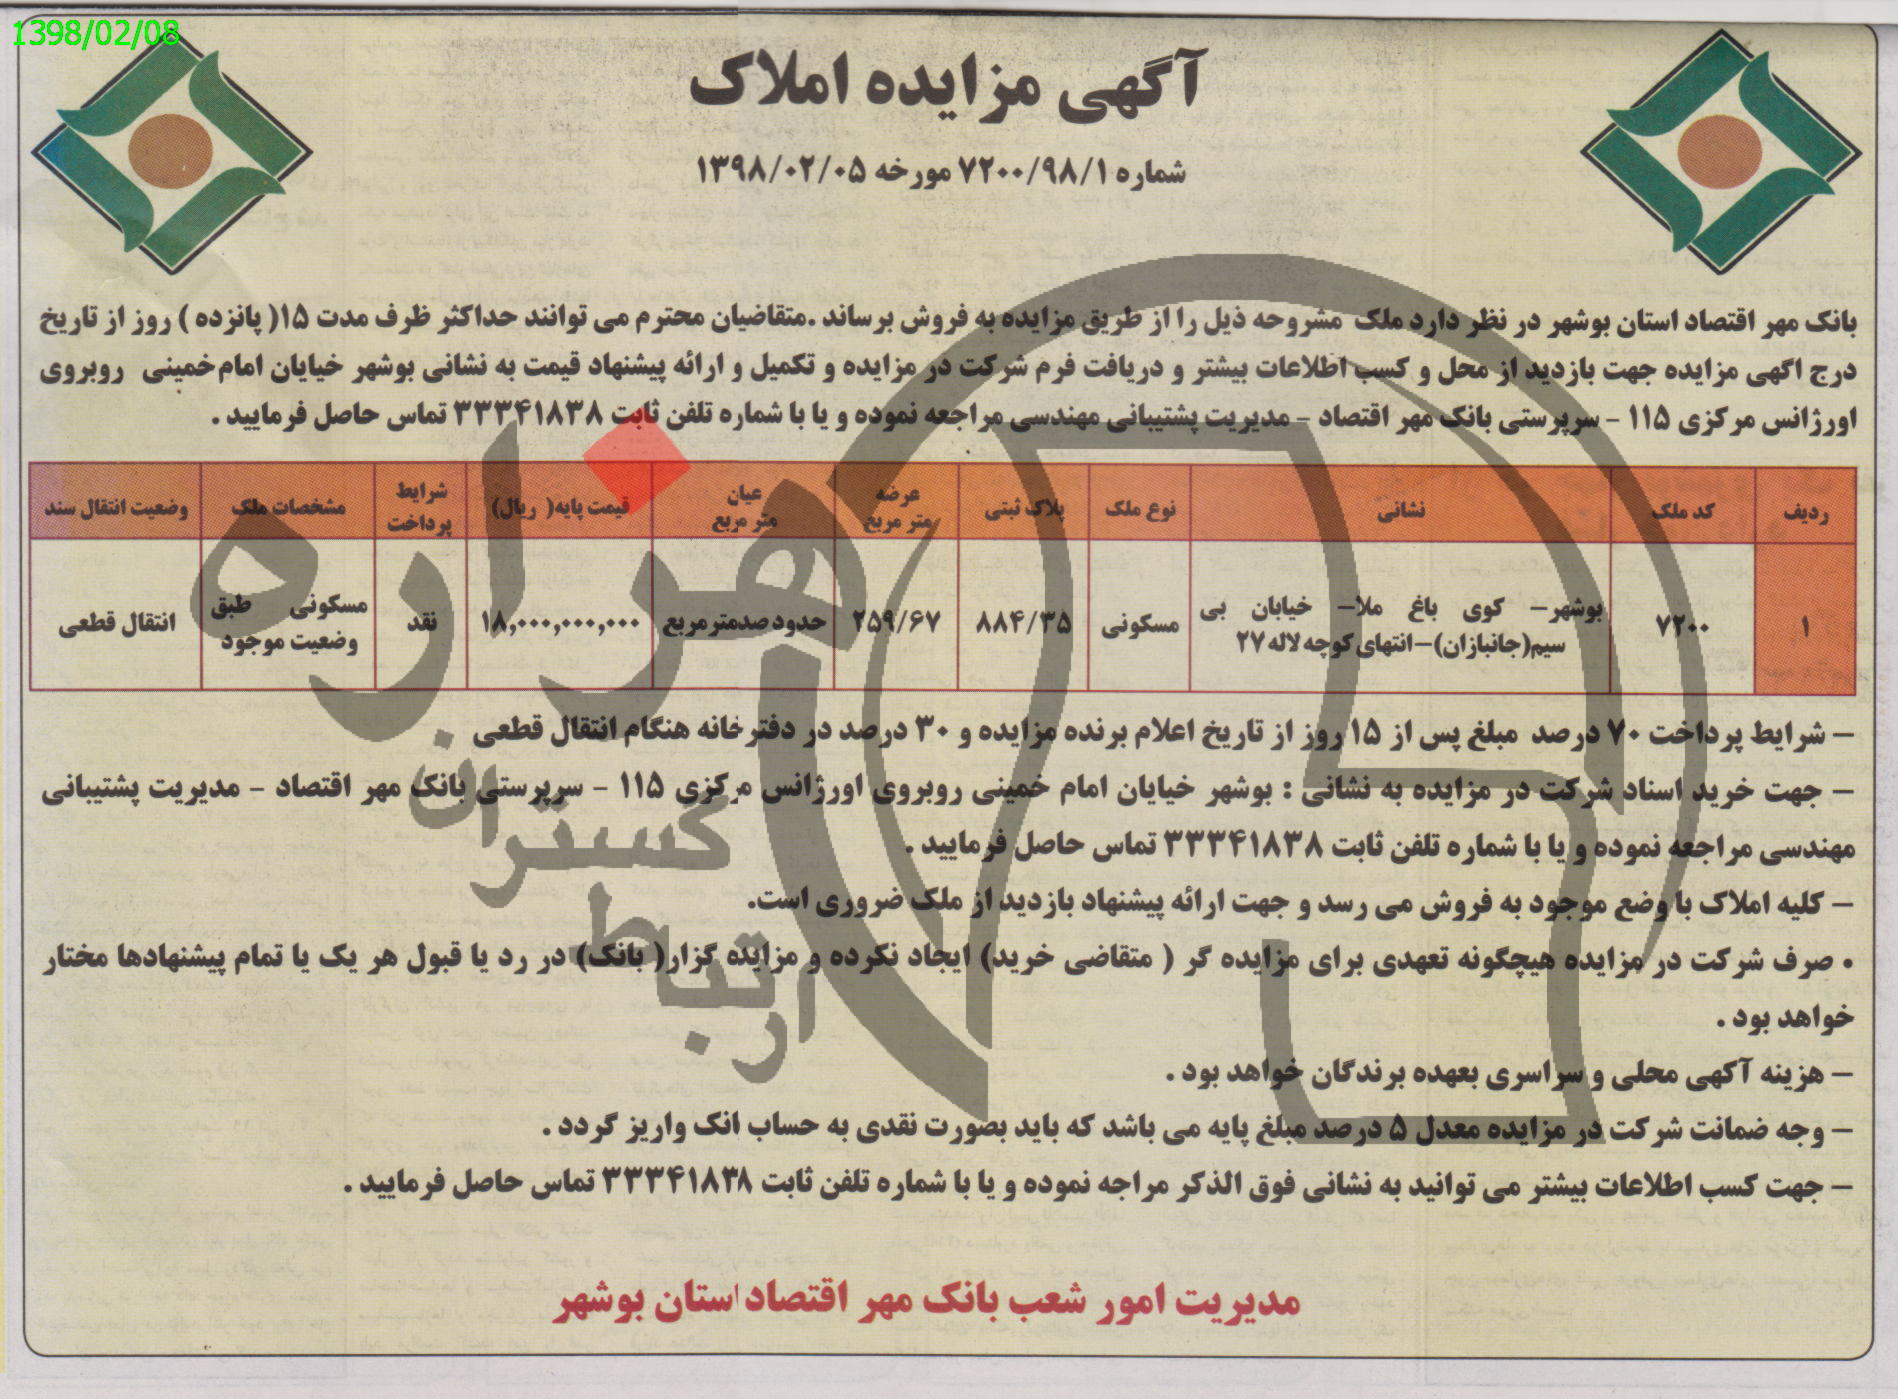 1398/02/08
آگهی مزایده املاک
شماره ۷۲۰۰/۹۸/۱ مورخه ۱۳۹۸/۰۲/۰۵
بانک مهر اقتصاد استان بوشهر در نظر دارد ملک مشروحه ذیل را از طریق مزایده به فروش برساند .متقاضیان محترم می توانند حداکثر ظرف مدت ۱۵( پانزده ) روز از تاریخ
درج اگهی مزایده جهت بازدید از محل و کسب اطلاعات بیشتر و دریافت فرم شرکت در مزایده و تکمیل و ارائه پیشنهاد قیمت به نشانی بوشهر خیایان امام خمینی روبروی
اورژانس مرکزی ۱۱۵ – سرپرستی بانک مهر اقتصاد – مدیریت پشتیبانی مهندسی مراجعه نموده و یا با شماره تلفن ثابت ۳۳۳۴۱۸۳۸ تماس حاصل فرمایید .
ردیف کد ملک نشانی نوع ملک پلاک ثبتی عرصه متر مربع عیان متر مربع قیمت پایه( ریال) شرایط پرداخت مشخصات ملک وضعیت انتقال سند
۱ ۷۲۰۰ بوشهر– کوی باغ ملا– خیابان بی سیم(جانبازان)–انتهای کوچه لاله ۲۷ مسکونی ۸۸۴/۳۵ ۲۵۹/۶۷ حدود صدمتر مربع ۱۸,۰۰۰,۰۰۰,۰۰۰ نقد مسکونی طبق وضعیت موجود انتقال قطعی
– شرایط پرداخت ۷۰ درصد مبلغ پس از ۱۵ روز از تاریخ اعلام برنده مزایده و ۳۰ درصد در دفترخانه هنگام انتقال قطعی
– جهت خرید اسناد شرکت در مزایده به نشانی : بوشهر خیایان امام خمینی روبروی اورژانس مرکزی ۱۱۵ – سرپرستی بانک مهر اقتصاد – مدیریت پشتیبانی
مهندسی مراجعه نموده و یا با شماره تلفن ثابت ۳۳۳۴۱۸۳۸ تماس حاصل فرمایید .
– کلیه املاک با وضع موجود به فروش می رسد و جهت ارائه پیشنهاد بازدید از ملک ضروری است.
• صرف شرکت در مزایده هیچگونه تعهدی برای مزایده گر ( متقاضی خرید) ایجاد نکرده و مزایده گزار( بانک) در رد یا قبول هر یک یا تمام پیشنهادها مختار
خواهد بود .
– هزینه آکهی محلی و سراسری بعهده برندگان خواهد بود .
– وجه ضمانت شرکت در مزایده معدل ۵ درصد مبلغ پایه می باشد که باید بصورت نقدی به حساب انک واریز گردد .
– جهت کسب اطلاعات بیشتر می توانید به نشانی فوق الذکر مراجه نموده و یا با شماره تلفن ثابت ۳۳۳۴۱۸۳۸ تماس حاصل فرمایید .
مدیریت امور شعب بانک مهر اقتصاد استان بوشهر
هزاره
گستران
ارتباط